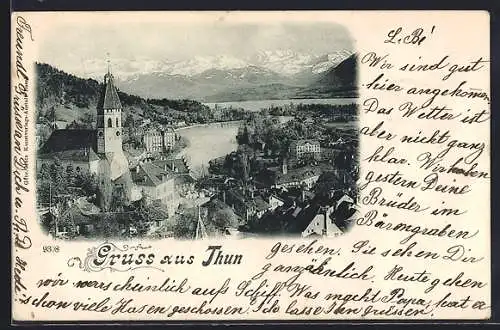 L. Bé!
Wir sind gut
hier angekommen.
Das Wetter ist
aber nicht ganz
klar. Wir haben
gestern Deine
Brüder im
Bärengraben
gesehen. Sie sehen Dir
ganz ähnlich. Heute gehen
wir wahrscheinlich auf's Schiff. Was macht Papa, hat er
schon viele Hasen geschossen. Ich lasse Ihn grüssen.
9308
Gruss aus Thun
Freundl. Grüsse an Dich u.